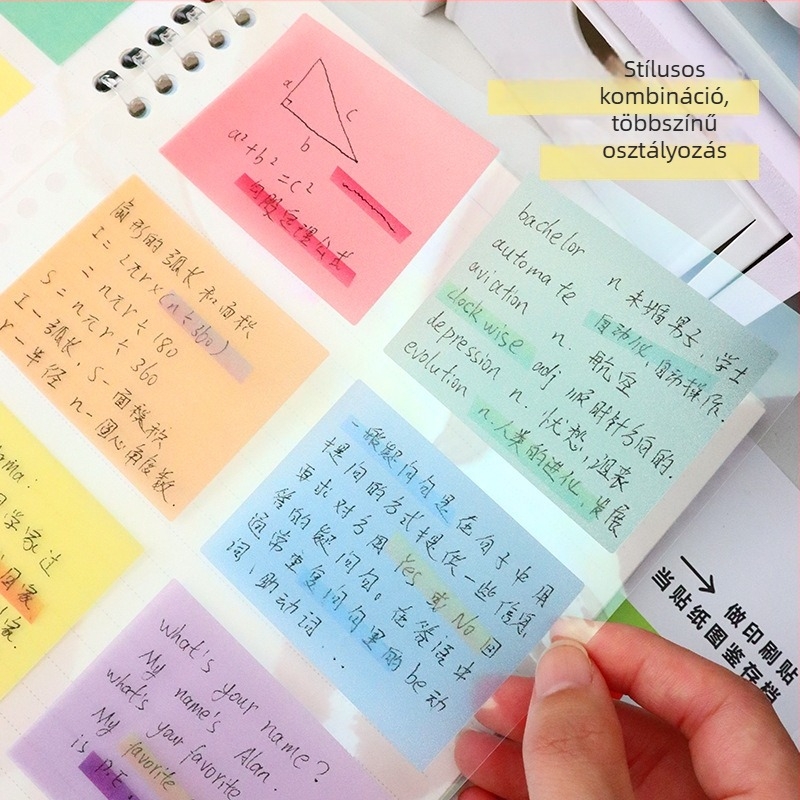 Stílusos
kombináció,
többszínű
osztályozás
a
c
b
a²+b²=c²
勾股定理公式
扇形的弧长和面积
l = 2πr×(n÷360)
= nπr÷180
S = nπr÷360
l-弧长, S-面积
r-半径 n-圆心角度数.
bachelor n 未婚男子,学士
automate 自动化,自动操作.
aviation n. 航空
clockwise adj 顺时针方向的.
depression n. 忧愁,沮丧
evolution n 人类的进化,发展
一般疑问句是在句子中用
提问的方式提供一些信息,
要求对方用 Yes 或 No 回
答的疑问句。在答语中
通常重复问句里的 be动
词,助动词...
ama:
学家过
国家
家.
what's your name?
My name's Alan.
what's your favorite
My favorite
is P.E.
做印刷贴
当贴纸图鉴存档